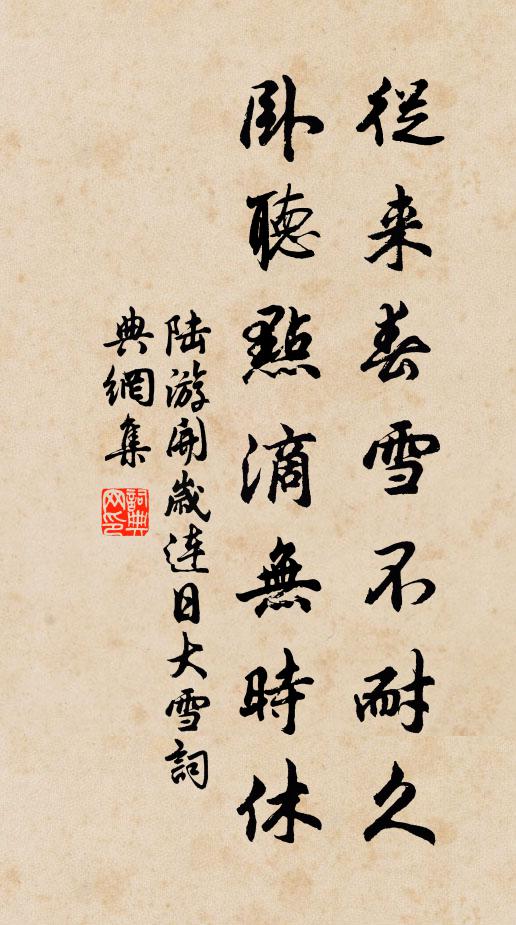 從来春雪不耐久
卧聽點滴無時休
陆游開嵗连日大雪詞
典網集
詞典
网印